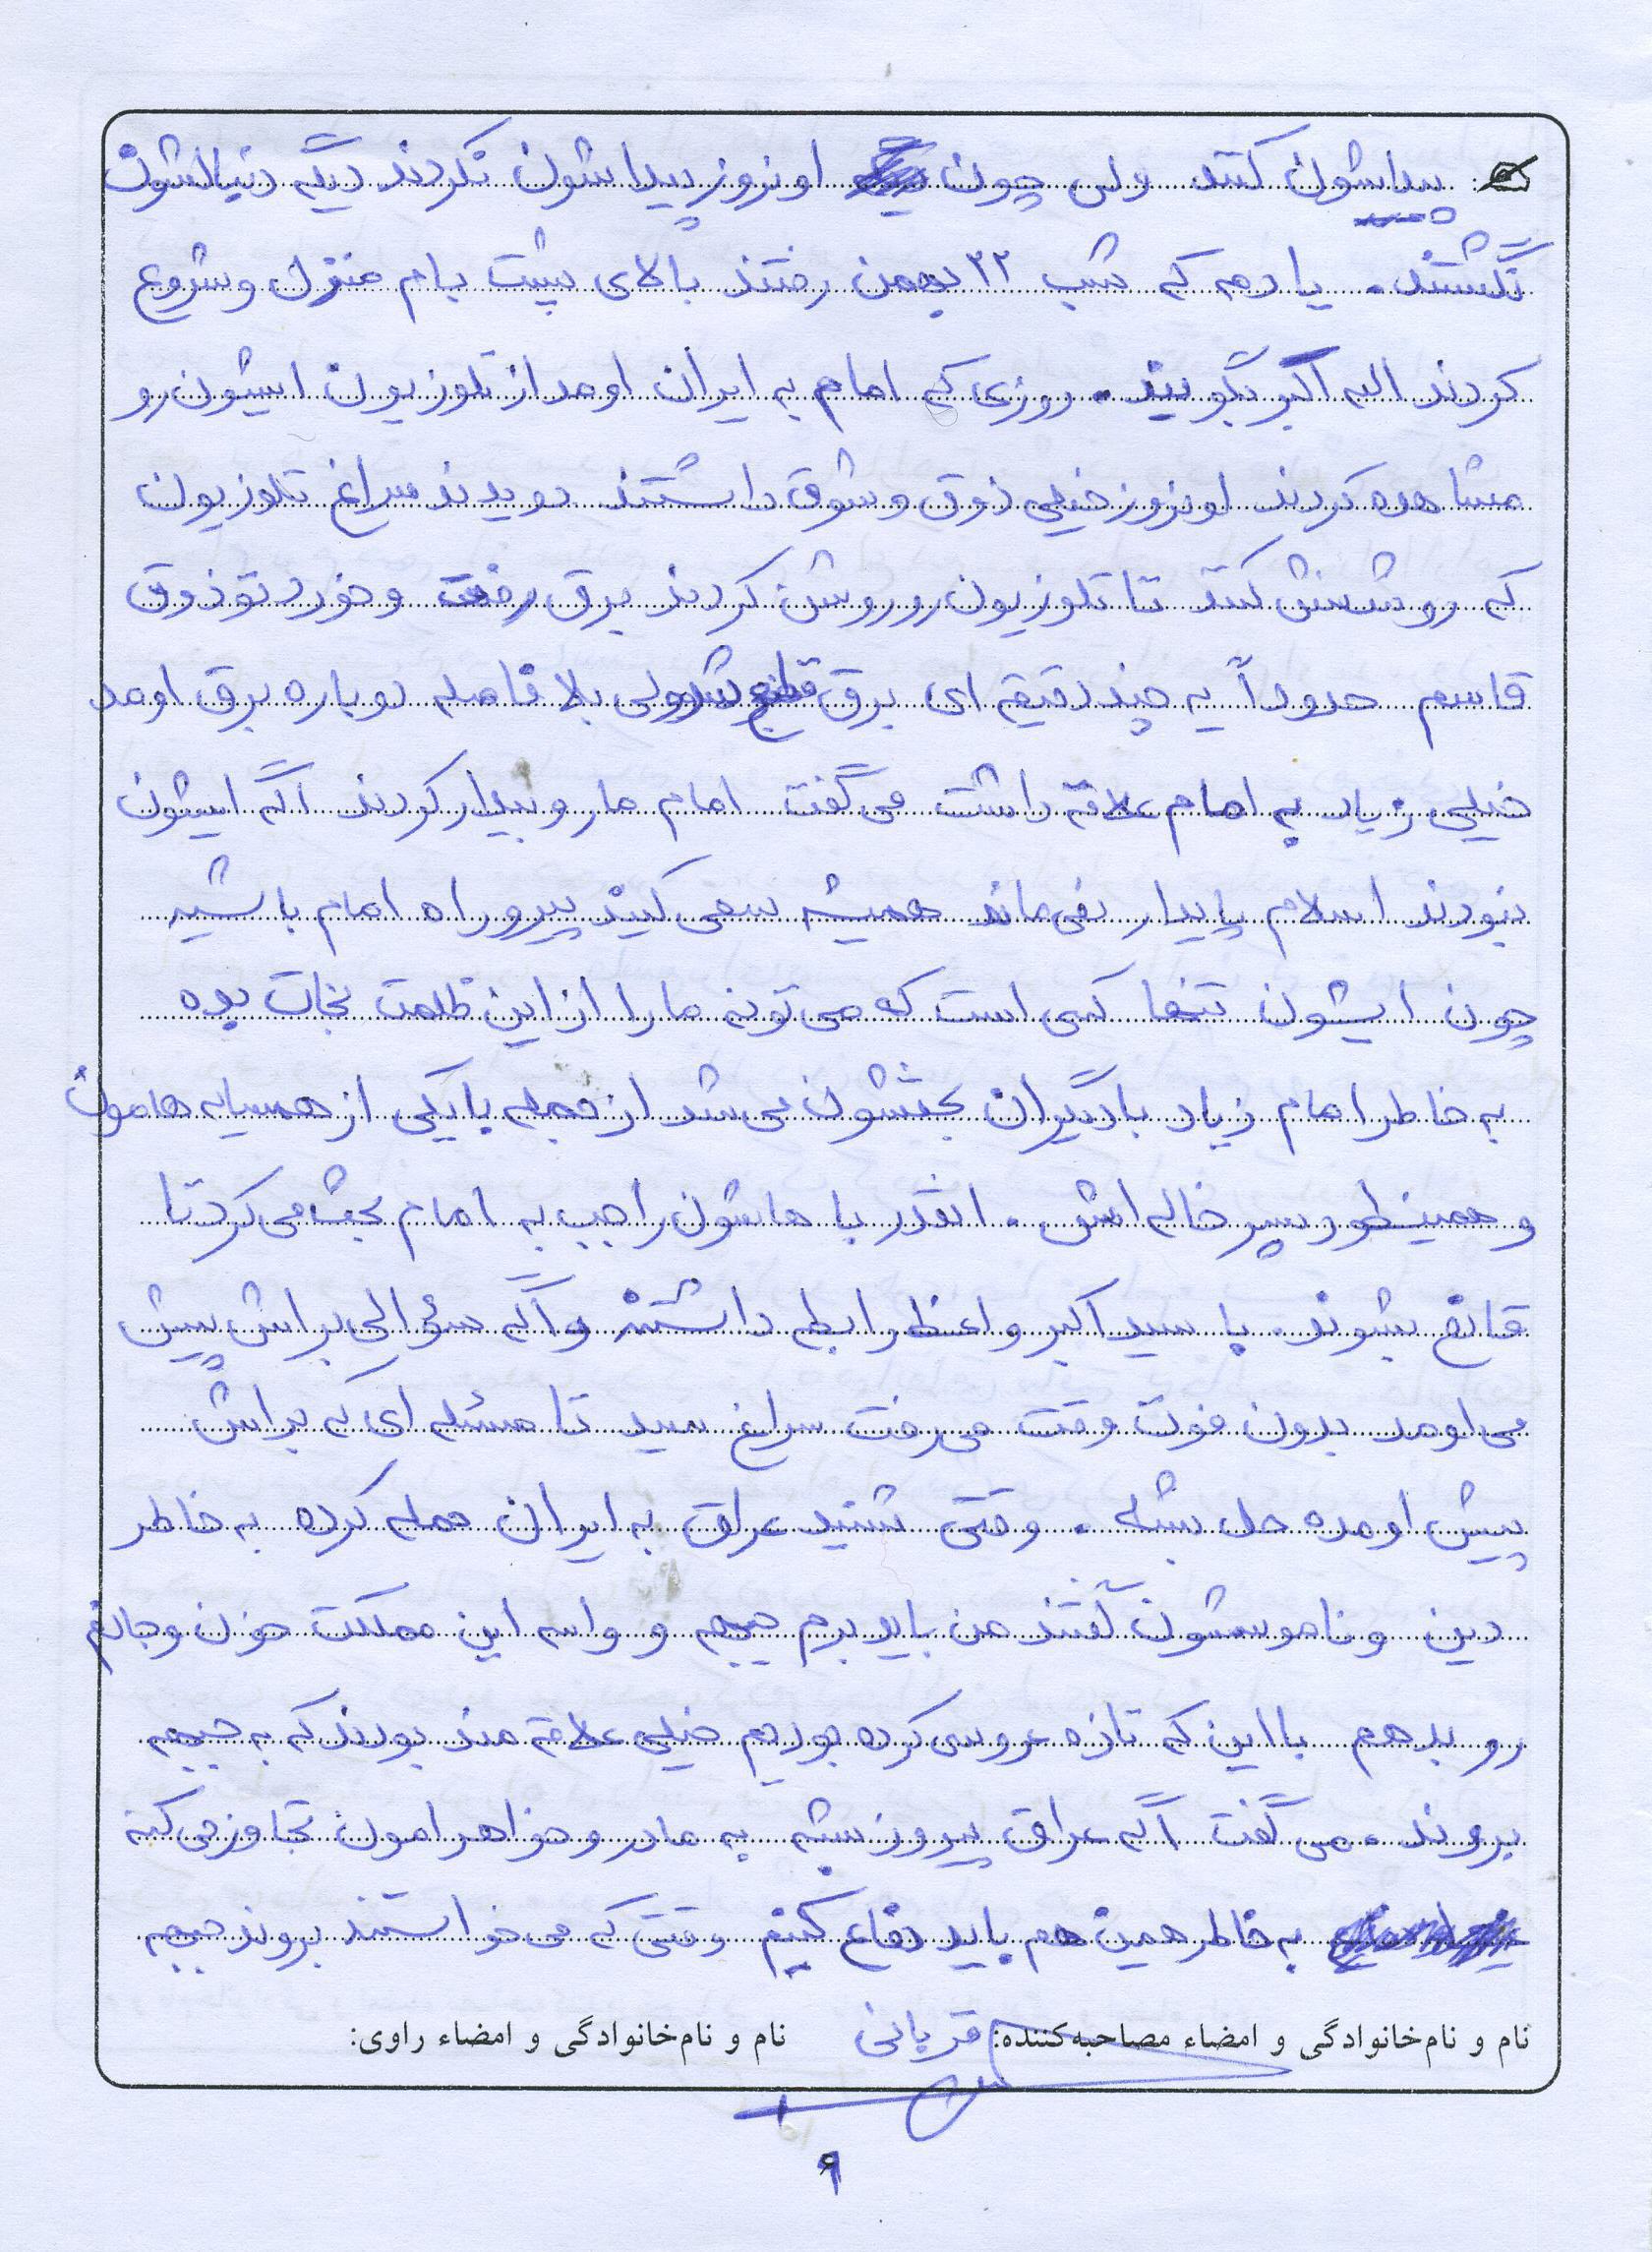 پیداشون کنند ولی چون اونروز پیداشون نکردند دیگه دنبالشون
نگشتند. یادمه که شب ۲۲ بهمن رفتند بالای پشت بام منزل و شروع
کردند الله اکبر بگویند. روزی که امام به ایران اومد از تلوزیون ایشون رو
مشاهده کردند اونروز خیلی ذوق و شوق داشتند دویدند سراغ تلوزیون
که روشنش کنند تا تلوزیون رو روشن کردند برق رفت و خورد تو ذوق
قاسم حدوداً یه چند دقیقه ای برق قطع شد ولی بلا فاصله دوباره برق اومد
خیلی زیاد به امام علاقه داشت می گفت امام ما رو بیدار کردند اگه ایشون
نبودند اسلام پایدار نمی ماند همیشه سعی کنید پیرو راه امام باشید
چون ایشون تنها کسی است که می تونه ما را از این ظلمت نجات بده
به خاطر امام زیاد با دیگران بحثشون می شد از جمله با یکی از همسایه هامون
و همینطور پسر خاله اش. انقدر با هاشون راجب به امام بحث می کرد تا
قانع بشوند. با سید اکبر واعظ رابطه داشتند و اگه سؤالی براش پیش
می اومد بدون فوت وقت می رفت سراغ سید تا مسئله ای که براش
پیش اومده حل بشه. وقتی شنید عراق به ایران حمله کرده به خاطر
دین و ناموسشون گفتند من باید برم جبهه و واسه این مملکت خون و جانم
رو بدهم با این که تازه عروسی کرده بودیم خیلی علاقه مند بودند که به جبهه
بروند. می گفت اگه عراق پیروز بشه به مادر و خواهرامون تجاوز می کنه
به خاطر همین هم باید دفاع کنیم وقتی که می خواستند بروند جبهه
نام و نام‌خانوادگی و امضاء مصاحبه‌کننده: قربانی نام و نام‌خانوادگی و امضاء راوی:
۶